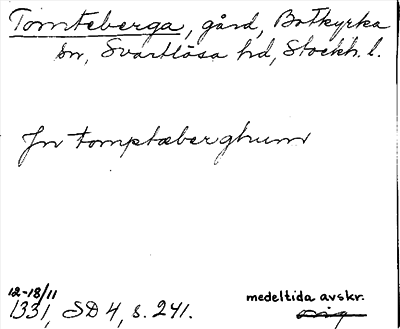 Tomteberga, gård, Botkyrka
sn, Svartlösa hd, Stockh. l.
Jn tomptæberghum
12-18/11
1331, SD 4, s. 241.
medeltida avskr.
orig